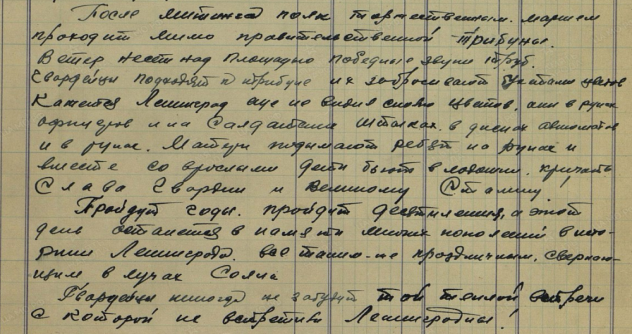 После митинга полк торжественным маршем
проходит мимо правительственной трибуны.
Ветер нести над площадью победные звуки труб.
Гвардейцы подходят к трибуне их забрасывают букетами цветов
Кажется Ленинград еще не видел столько цветов, они в руках
офицеров и на Солдатских штыках, в дисках автоматов
и в руках. Матери поднимают ребят на руках и
вместе со взрослыми дети бьют в ладоши, кричать
Слава Гвардии и великому Сталину!
Пройдут годы, пройдут десятилетия, а этот
день останется в памяти многих поколений в исто-
рии Ленинграда, все таким-же праздничным, сверкаю-
щим в лучах Солнца
Гвардейцы никогда не забудут той теплой встречи
с которой их встретили Ленинградцы!